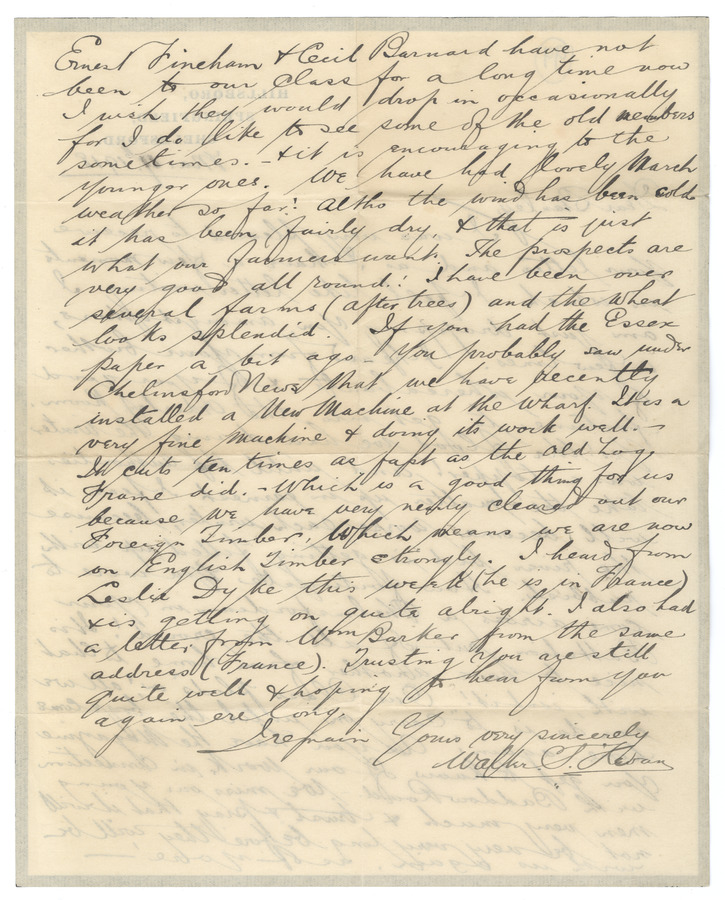 Ernest Fincham & Cecil Barnard have not
been to our Class for a long time now
I wish they would drop in occasionally
for I do like to see some of the old members
sometimes. - & it is encouraging to the
younger ones. We have had lovely March
weather so far! Altho the wind has been cold
it has been fairly dry, & that is just
what our farmers want. The prospects are
very good all round.! I have been over
several farms (after trees) and the wheat
looks splendid. If you had the Essex
paper a bit ago - you probably saw under
Chelmsford News that we have recently
installed a New Machine at the Wharf. It is a
very fine machine & doing its work well. -
It cuts ten times as fast as the old Log
Frame did. - Which is a good thing for us
because we have very nearly cleared out our
Foreign Timber, Which means we are now
on English Timber strongly. I heard from
Leslie Dyke this week (he is in France)
& is getting on quite alright. I also had
a letter from Wm Barker from the same
address (France). Trusting you are still
quite well & hoping to hear from you
again ere long.
I remain Yours very sincerely
Walter. S.